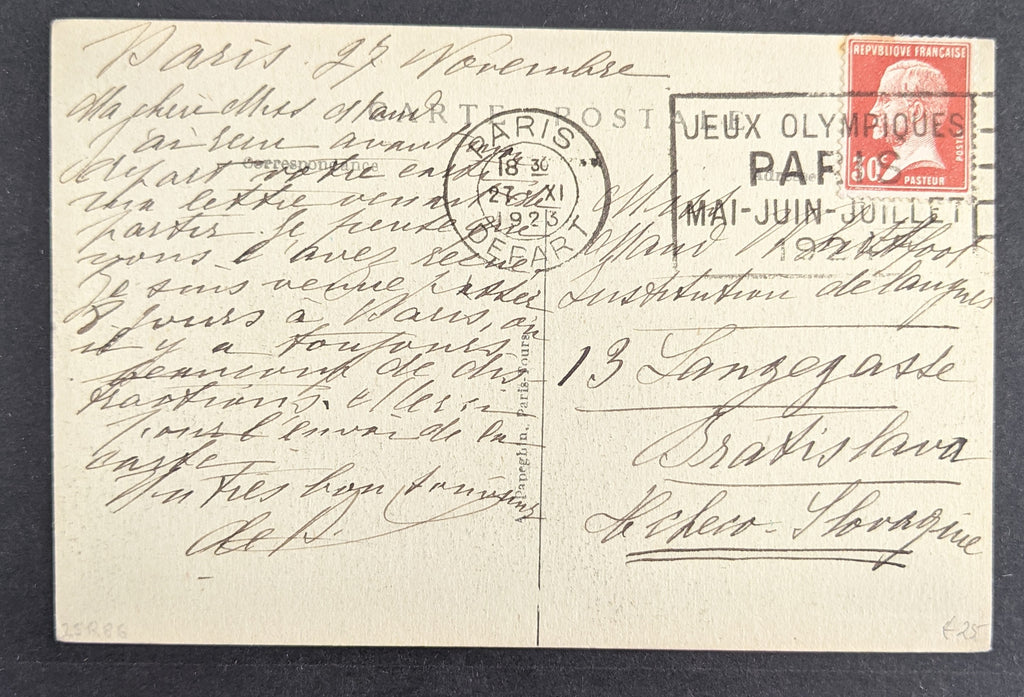 Paris 27 Novembre
CARTE POSTALE
Correspondance
Ma chère Miss Maud
J'ai reçu avant mon
départ votre carte
ma lettre venait de
partir. Je pense que
vous l'avez reçue.
Je suis venue passer
8 jours à Paris, où
il y a toujours
beaucoup de dis
tractions. Merci
pour l'envoi de la
carte
Un très bon souvenir
de
A. Papeghin, Paris-Tours
PARIS
18 30
27 XI
1923
DEPART
JEUX OLYMPIQUES
PARIS
MAI-JUIN-JUILLET
1924
REPUBLIQUE FRANÇAISE
POSTES
30c
PASTEUR
Adresse
Miss
Maud
Institution de langues
13 Langegasse
Bratislava
Tcheco-Slovaquie
25R86
€25